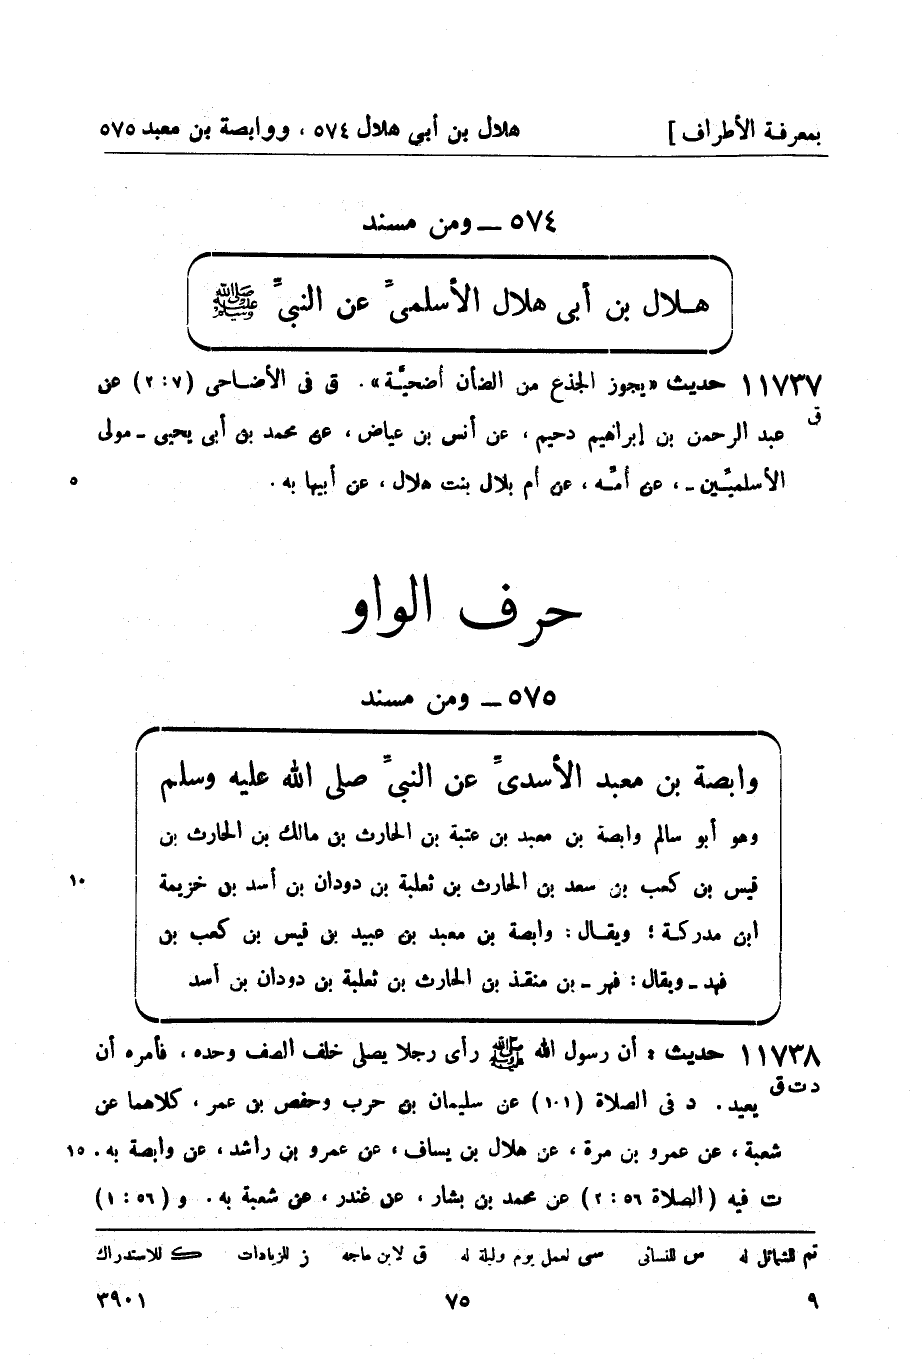 بمعرفة الأطراف ] هلال بن أبي هلال ٥٧٤ ، ووابصة بن معبد ٥٧٥
٥٧٤ ــ ومن مسند
هلال بن أبى هلال الأسلمىّ عن النبىّ ﷺ
١١٧٣٧ حديث «يجوز الجذع من الضأن أضحيَّة» . ق فى الأضاحى (٧ : ٢) عن
ق
عبد الرحمن بن إبراهيم دحيم ، عن أنس بن عياض ، عن محمد بن أبى يحيى ـ مولى
الأسلميِّين ـ ، عن أمِّه ، عن أم بلال بنت هلال ، عن أبيها به . ٥
حرف الواو
٥٧٥ ــ ومن مسند
وابصة بن معبد الأسدىّ عن النبىّ صلى الله عليه وسلم
وهو أبو سالم وابصة بن معبد بن عتبة بن الحارث بن مالك بن الحارث بن
قيس بن كعب بن سعد بن الحارث بن ثعلبة بن دودان بن أسد بن خزيمة ١٠
ابن مدركة ؛ ويقال : وابصة بن معبد بن عبيد بن قيس بن كعب بن
فهد ـ ويقال : فهر ـ بن منقذ بن الحارث بن ثعلبة بن دودان بن أسد
١١٧٣٨ حديث : أن رسول الله ﷺ رأى رجلا يصلى خلف الصف وحده ، فأمره أن
د ت ق
يعيد . د فى الصلاة (١٠١) عن سليمان بن حرب وحفص بن عمر ، كلاهما عن
شعبة ، عن عمرو بن مرة ، عن هلال بن يساف ، عن عمرو بن راشد ، عن وابصة به . ١٥
ت فيه (الصلاة ٥٦ : ٢) عن محمد بن بشار ، عن غندر ، عن شعبة به . و (٥٦ : ١)
تم للشمائل له س للنسائى سى لعمل يوم وليلة له ق لابن ماجه ز للزيادات ك للاستدراك
٩ ٧٥ ٣٩٠١